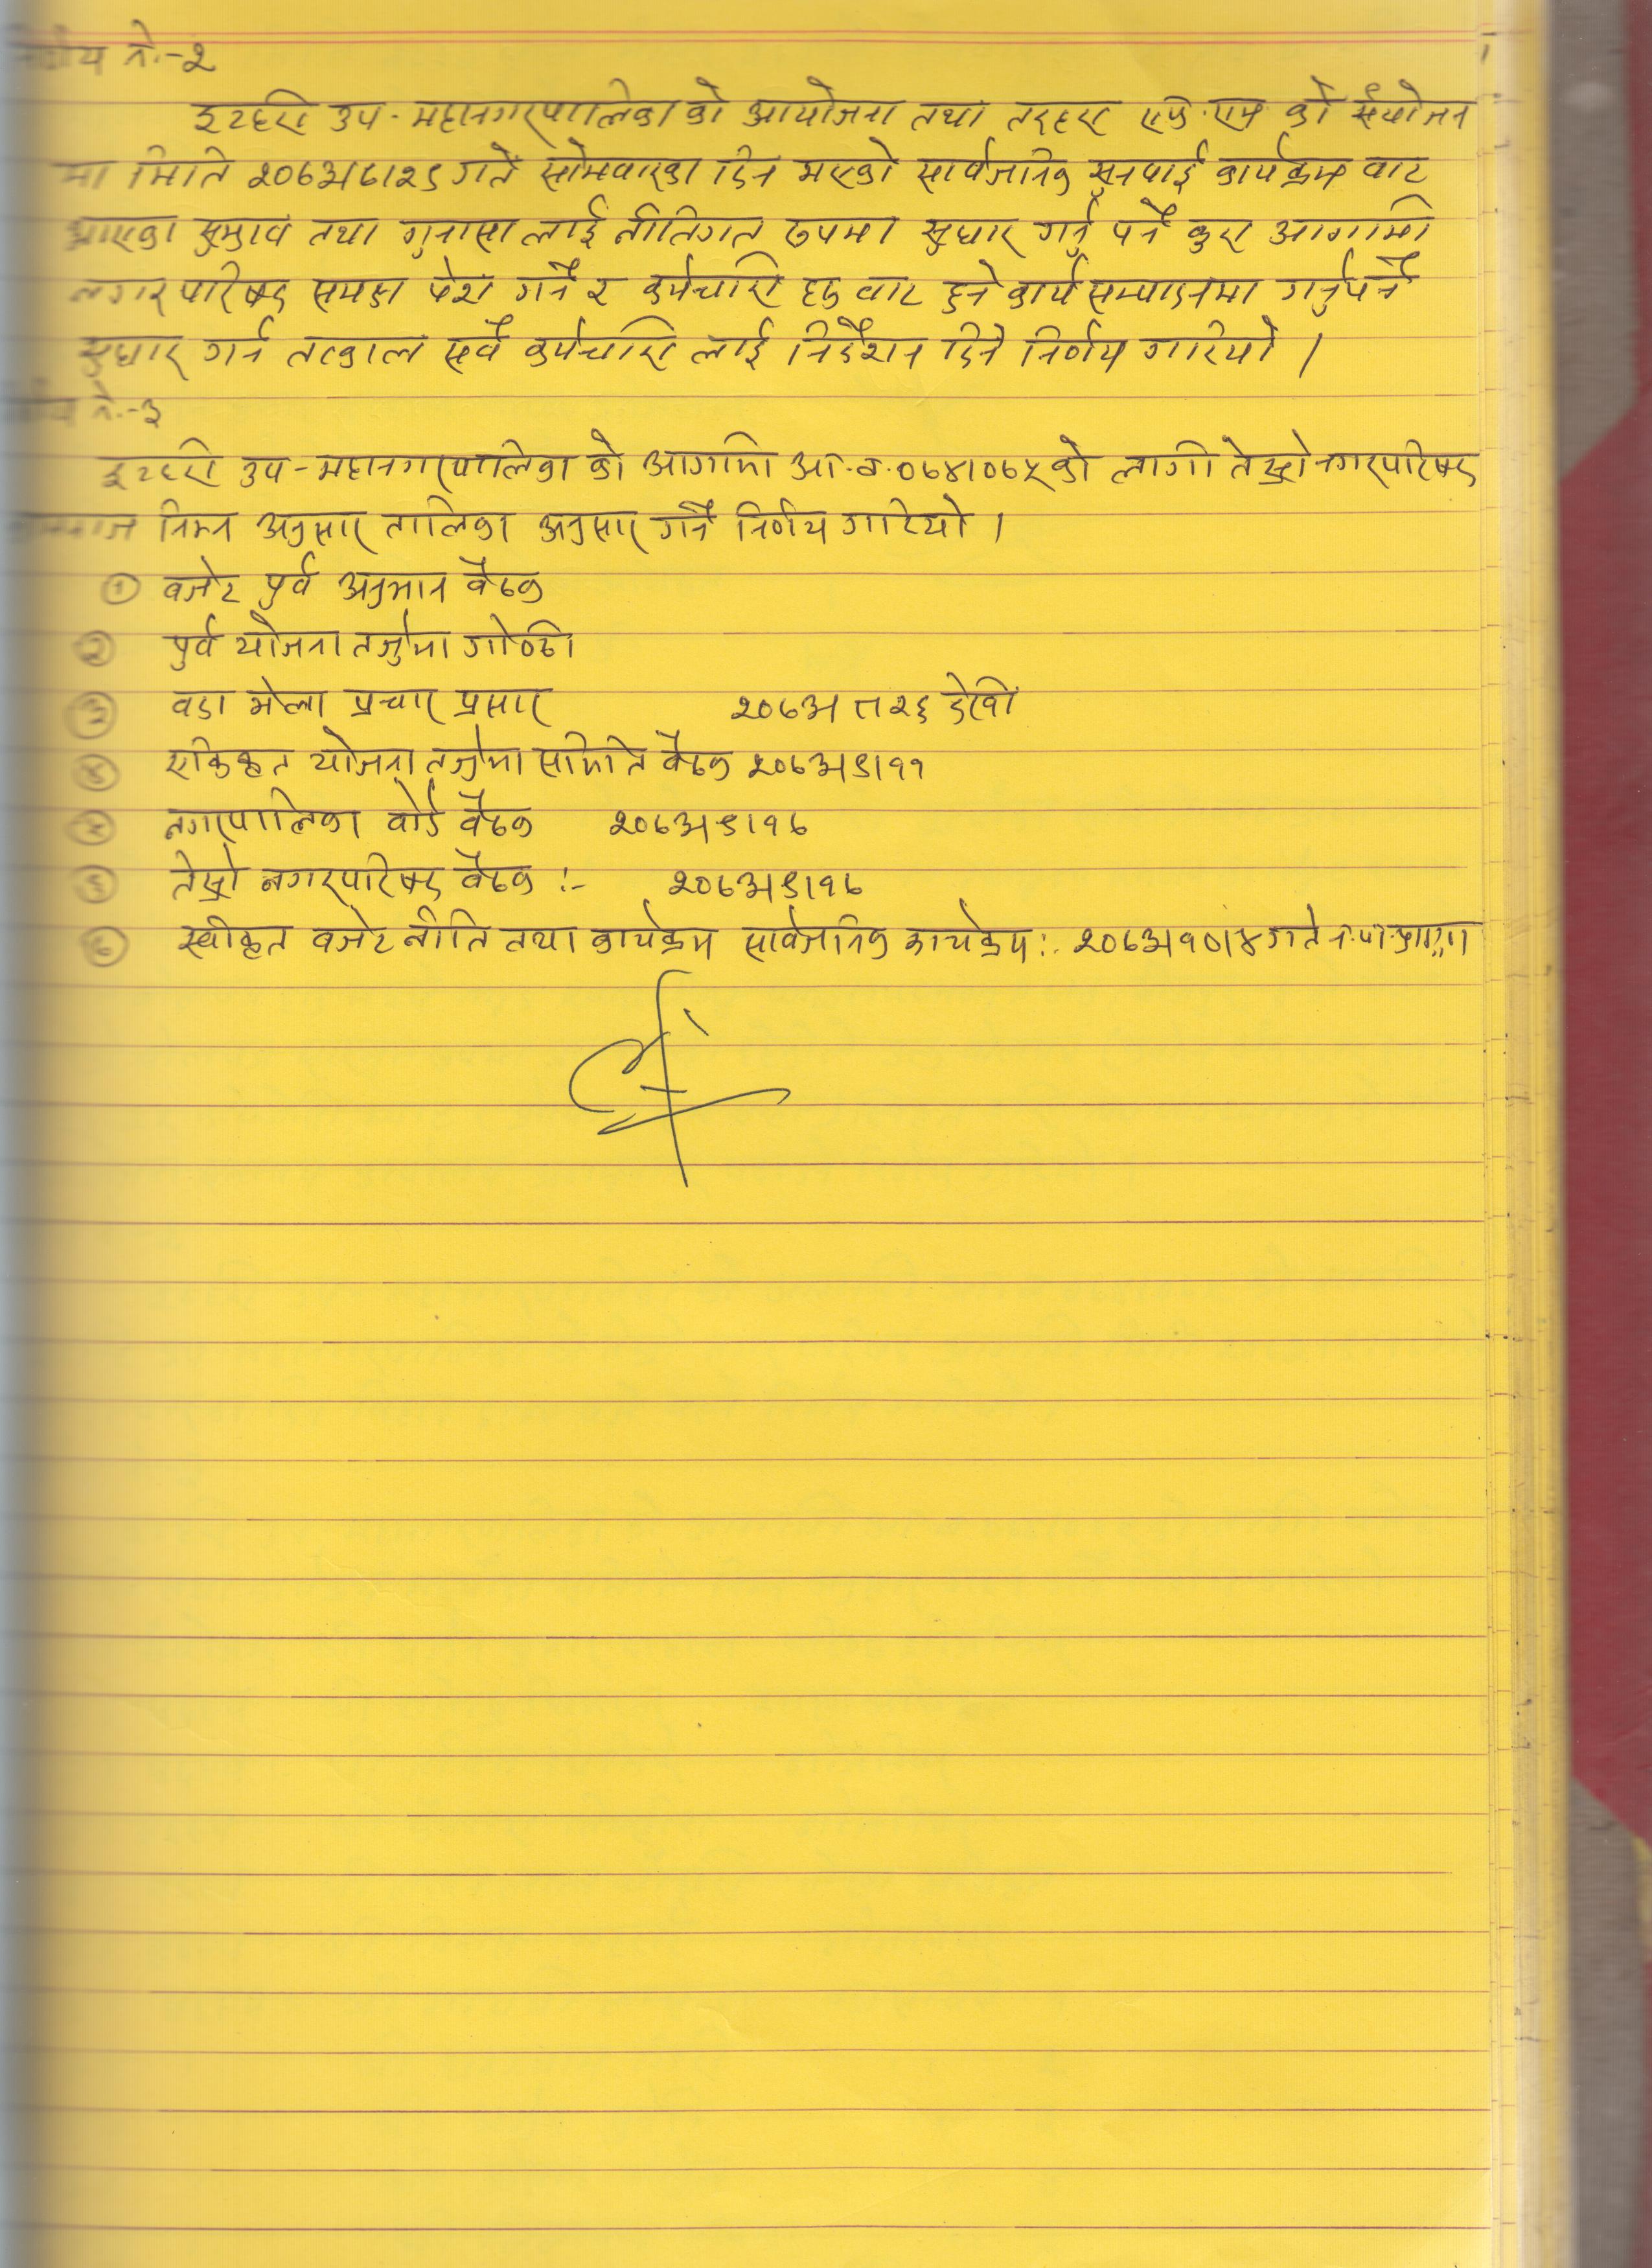 निर्णय नं.-२
इटहरी उप-महानगरपालिका को आयोजना तथा तरहरा एफ.एम को संयोजन
मा मिति २०७३।८।२९ गते सोमवारका दिन भएको सार्वजनिक सुनुवाई कार्यक्रम वाट
आएका सुझाव तथा गुनासा लाई नीतिगत रुपमा सुधार गर्नु पर्ने कुरा आगामी
नगर परिषद समक्ष पेश गर्ने र कर्मचारी हरु वाट हुने कार्य सम्पादनमा गर्नुपर्ने
सुधार गर्न तत्काल सर्वै कर्मचारी लाई निर्देशन दिने निर्णय गरियो ।
निर्णय नं.-३
इटहरी उप-महानगरपालिका को आगामी आ.व.०७४।०७५ को लागी तेस्रो नगरपरिषद
निम्न अनुसार तालिका अनुसार गर्ने निर्णय गरियो ।
① वजेट पुर्व अनुमान वैठक
② पुर्व योजना तर्जुमा गोष्ठी
③ वडा भेला प्रचार प्रसार २०७३।८।२६ देखी
④ एकिकृत योजना तर्जुमा समिति वैठक २०७३।९।११
⑤ नगरपालिका वोर्ड वैठक २०७३।९।१७
⑥ तेस्रो नगरपरिषद वैठक :- २०७३।९।१७
⑦ स्वीकृत वजेट नीति तथा कार्यक्रम सार्वजनिक कार्यक्रम :- २०७३।१०।४ गते न.पा.प्राङ्गण